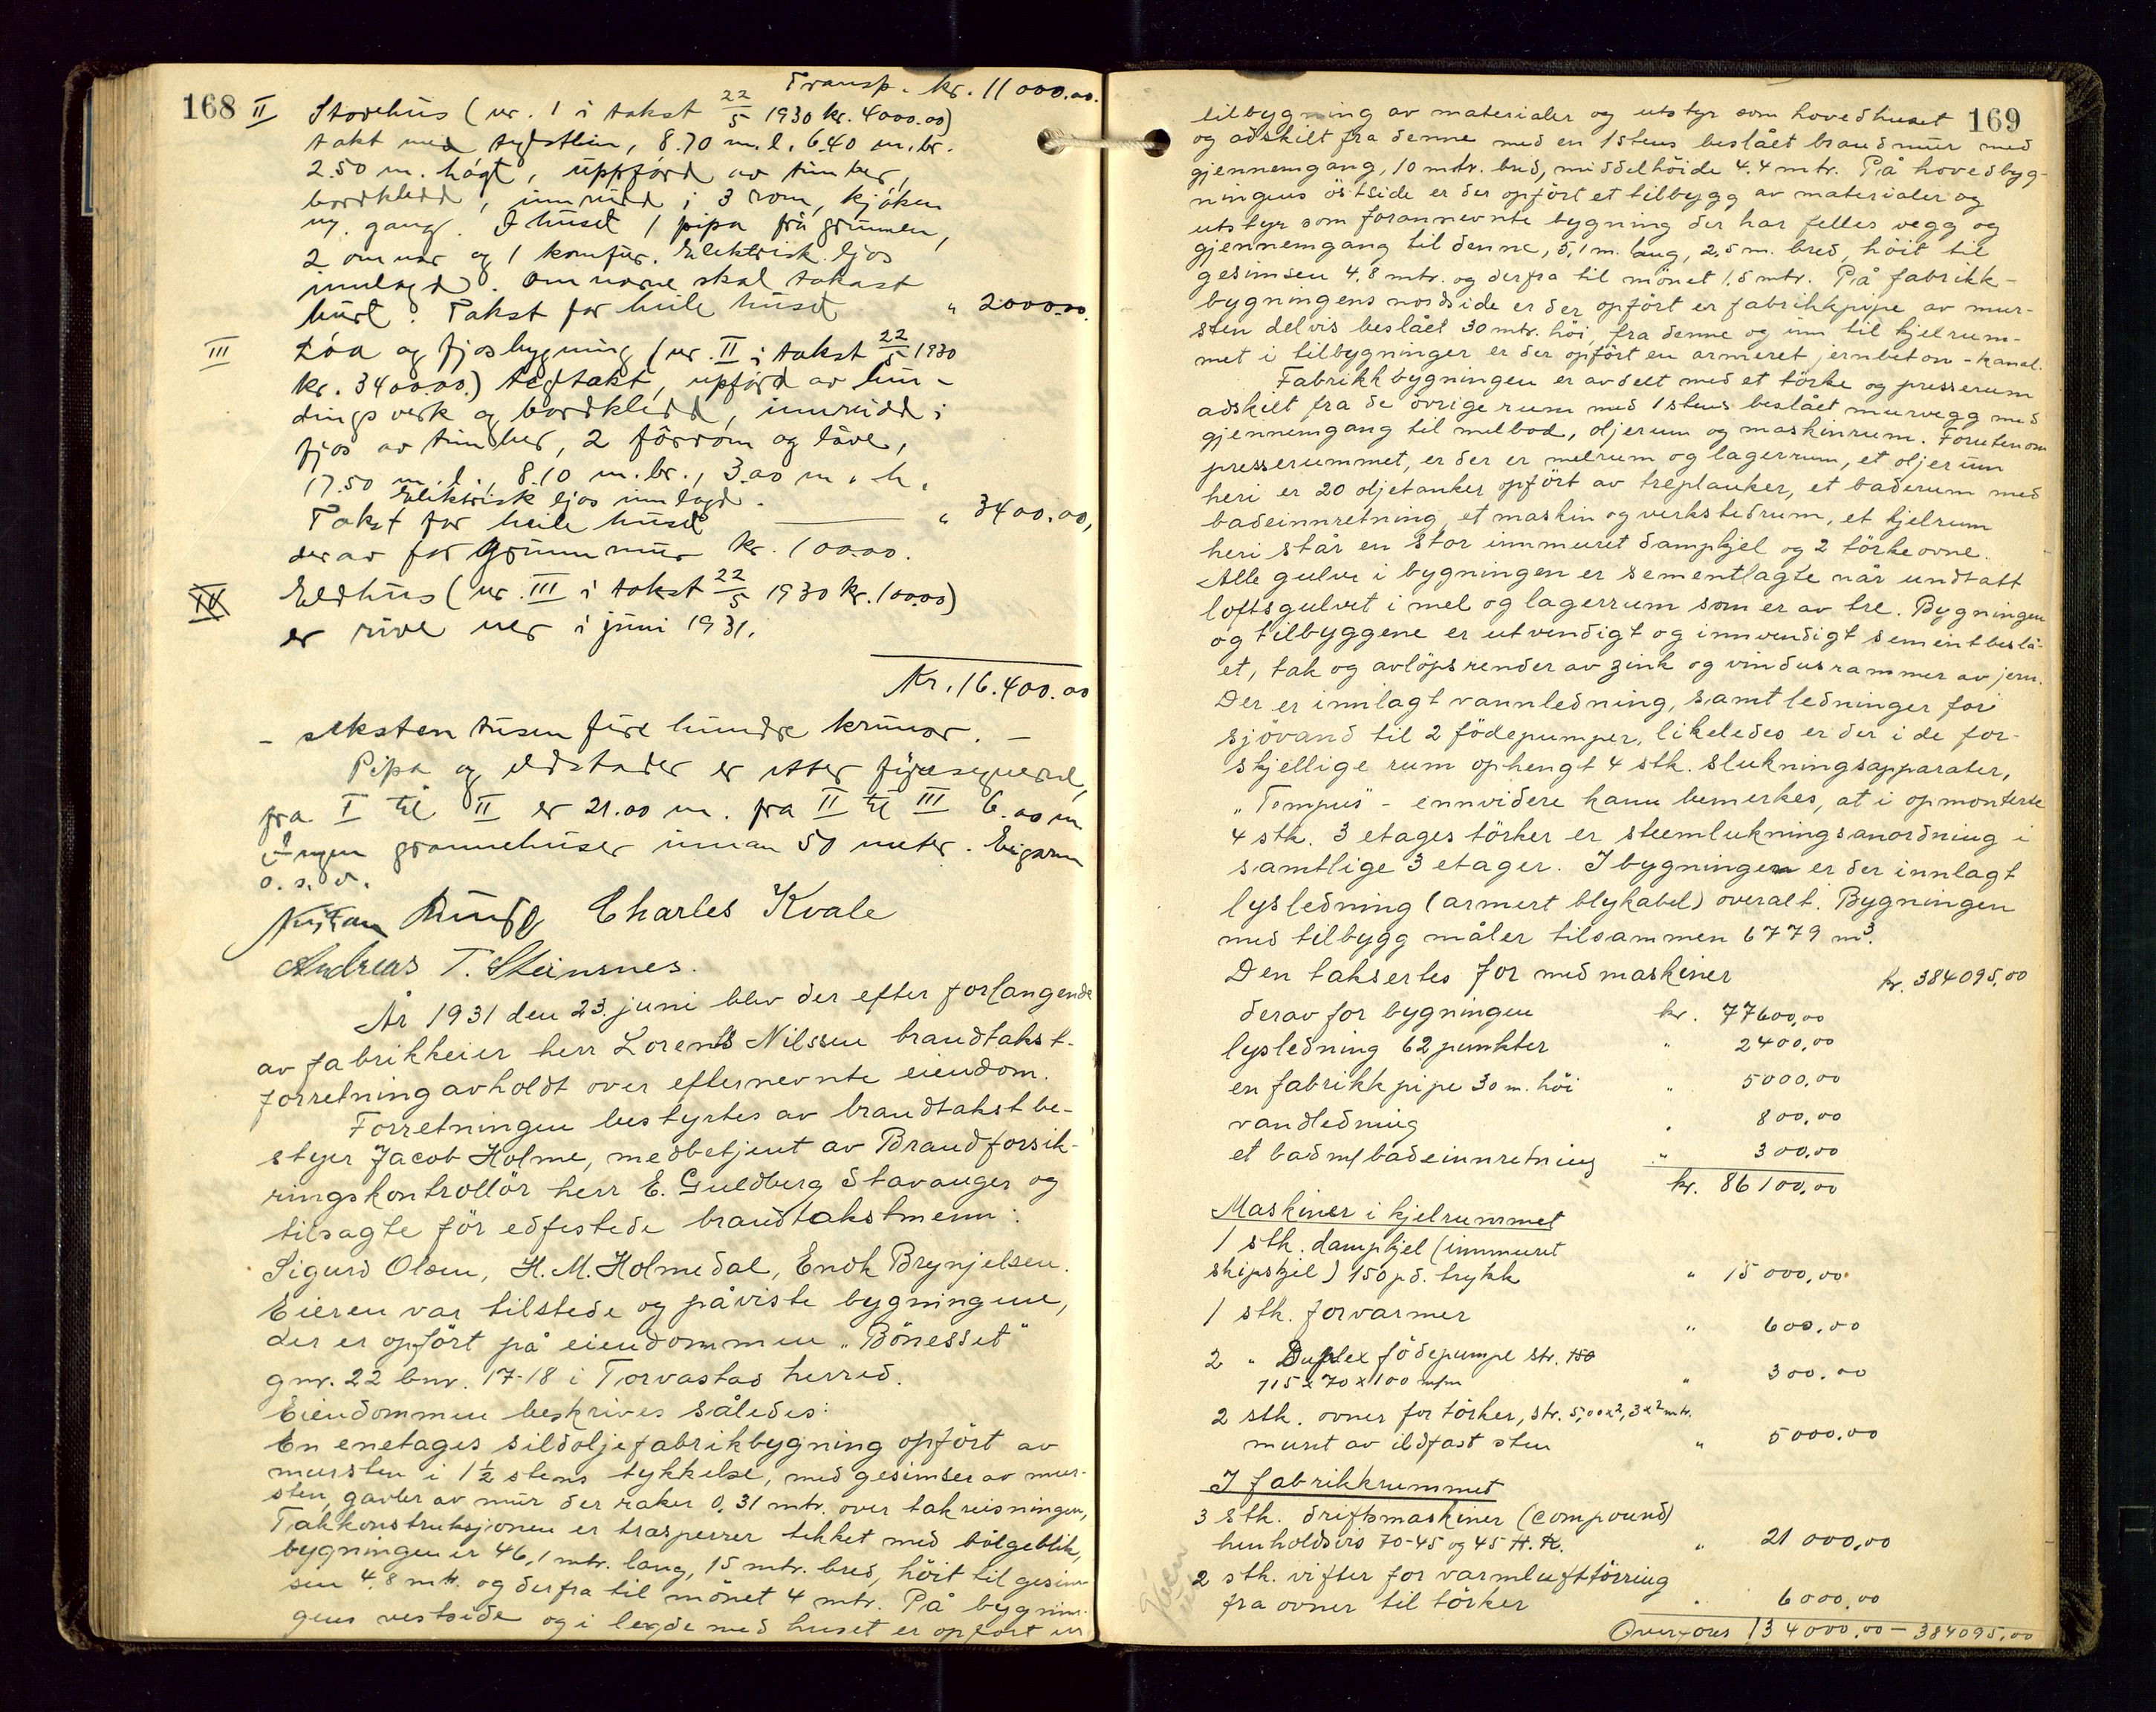 168
Transp. kr. 11000.00.
II Stovehus (nr. 1 i takst 22/5 1930 kr. 4000.00)
takt med tegstein, 8.70 m. l. 6.40 m. br.
2.50 m. høgt, uppførd av timber,
bordkledd, innreidd i 3 rom, kjøken
og gang. I huset 1 pipa frå grunnen,
2 omnar og 1 komfur. Elektrisk ljos
innlagd. Omnarne skal takast
burt. Takst for heile huset " 2000.00.
III Löa og fjosbygning (nr. II i takst 22/5 1930
kr. 3400.00.) tegltakt, uppførd av bin-
dingsverk og bordkledd, innreidd i
fjos av timber, 2 fôrrom og låve,
17.50 m. l., 8.10 m. br., 3.00 m. h.
Elektrisk ljos innlagd.
Takst for heile huset " 3400.00,
derav for grunnmur kr. 100.00.
IV Eldhus (nr. III i takst 22/5 1930 kr. 100.00)
er rive ner i juni 1931.
Kr. 16.400.00
- seksten tusen fire hundre krunor. -
Pipa og eldstader er etter
fra I til II er 21.00 m. fra II til III 6.00 m
Ingen grannehuser innan 50 meter.
o. s. v.
Charles Kvale
Andreas T. Steinsnes.
År 1931 den 23. juni blev der efter forlangende
av fabrikkeier herr Lorents Nilssen brandtakst-
forretning avholdt over efternevnte eiendom.
Forretningen bestyrtes av brandtakstbe-
styer Jacob Holme, medbetjent av Brandforsik-
ringskontrollör herr E. Guldberg Stavanger og
tilsagte för edfestede brandtakstmenn:
Sigurd Olsen, H. M. Holmedal, Endk Brynjelsen.
Eieren var tilstede og påviste bygningene,
der er opfört på eiendommen "Bönesset"
gnr. 22 bnr. 17-18 i Torvastad herred.
Eiendommen beskrives således:
En enetages sildoljefabrikbygning opfört av
mursten i 1½ stens tykkelse, med gesimser av mur-
sten, gavler av mur der raker 0,31 mtr. over takreisningen,
Takkonstruksjonen er trasperrer tekket med bölgeblik,
bygningen er 46,1 mtr. lang, 15 mtr. bred, höit til gesim-
sen 4,8 mtr. og derfra til mönet 4 mtr. På bygnin-
gens vestside og i legde med huset er opfört en
169
tilbygning av materialer og utstyr som hovedhuset
og adskilt fra denne med en 1 stens beslået brandmur med
gjennemgang, 10 mtr. bred, middelhöide 4.4 mtr. På hovedbyg-
ningens östside er der opfört et tilbygg av materialer og
utstyr som forannevnte bygning der har felles vegg og
gjennemgang til denne, 5,1 m. lang, 2,5 m. bred, höit til
gesimsen 4,8 mtr. og derfra til mönet 1,5 mtr. På fabrikk-
bygningens nordside er der opfört er fabrikkpipe av mur-
sten delvis beslået 30 mtr. höi, fra denne og inn til kjelrum-
met i tilbygninger er der opfört en armeret jernbeton-kanal.
Fabrikkbygningen er avdelt med et törke og presserum
adskilt fra de övrige rum med 1 stens beslået murvegg med
gjennemgang til melbod, oljerum og maskinrum. Forutenom
presserummet, er der er melrum og lagerrum, et oljerum
heri er 20 oljetanker opfört av treplanker, et baderum med
badeinnretning, et maskin og verkstedrum, et kjelrum
heri står en stor innmuret dampkjel og 2 törkeovne.
Alle gulve i bygningen er sementlagte når undtatt
loftsgulvet i mel og lagerrum som er av tre. Bygningen
og tilbyggene er utvendigt og innvendigt sementbeslå-
et, tak og avlöpsrender av zink og vindusrammer av jern.
Der er innlagt vannledning, samt ledninger for
sjövand til 2 födepumper, likeledes er der i de for-
skjellige rum ophengt 4 stk. slukningsapparater,
"Tempus" - ennvidere kann bemerkes, at i opmonterte
4 stk. 3 etages törker er steemlukningsanordning i
samtlige 3 etager. I bygningen er der innlagt
lysledning (armert blykabel) overalt. Bygningen
med tilbygg måler tilsammen 6779 m³.
Den taksertes for med maskiner kr. 384095,00
derav for bygningen kr. 77600,00
lysledning 62 punkter " 2400,00
en fabrikkpipe 30 m. höi " 5000,00
vandledning " 800,00
et bad m/ badeinnretning " 300,00
kr. 86100,00
Maskiner i kjelrummet
1 stk. dampkjel (innmuret
skipskjel) 150 pd. trykk " 15000,00
1 stk. forvarmer " 600,00
2 " Duplex födepumpe str. 150
115 x 70 x 100 m/m " 300,00
2 stk. ovner for törker, str. 5,00x2,3x2 mtr.
muret av ildfast sten " 5000,00
I fabrikkrummet
3 stk. driftsmaskiner (compound)
henholdsvis 70-45 og 45 H.K. " 21000,00
2 stk. vifter for varmluftförring
fra ovner til törker " 6000,00
Overföres 134000,00 - 384095,00